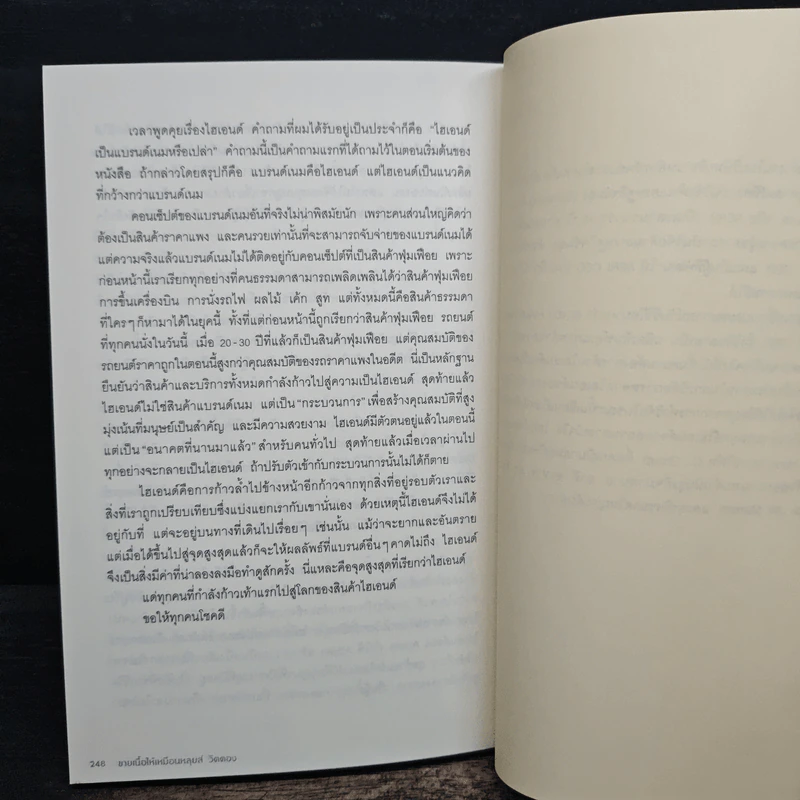 เวลาพูดคุยเรื่องไฮเอนด์ คำถามที่ผมได้รับอยู่เป็นประจำก็คือ “ไฮเอนด์
เป็นแบรนด์เนมหรือเปล่า” คำถามนี้เป็นคำถามแรกที่ได้ถามไว้ในตอนเริ่มต้นของ
หนังสือ ถ้ากล่าวโดยสรุปก็คือ แบรนด์เนมคือไฮเอนด์ แต่ไฮเอนด์เป็นแนวคิด
ที่กว้างกว่าแบรนด์เนม
คอนเซ็ปต์ของแบรนด์เนมอันที่จริงไม่น่าพิสมัยนัก เพราะคนส่วนใหญ่คิดว่า
ต้องเป็นสินค้าราคาแพง และคนรวยเท่านั้นที่จะสามารถจับจ่ายของแบรนด์เนมได้
แต่ความจริงแล้วแบรนด์เนมไม่ได้ติดอยู่กับคอนเซ็ปต์ที่เป็นสินค้าฟุ่มเฟือย เพราะ
ก่อนหน้านี้เราเรียกทุกอย่างที่คนธรรมดาสามารถเพลิดเพลินได้ว่าสินค้าฟุ่มเฟือย
การขึ้นเครื่องบิน การนั่งรถไฟ ผลไม้ เค้ก สูท แต่ทั้งหมดนี้คือสินค้าธรรมดา
ที่ใครๆ ก็หามาได้ในยุคนี้ ทั้งที่แต่ก่อนหน้านี้ถูกเรียกว่าสินค้าฟุ่มเฟือย รถยนต์
ที่ทุกคนนั่งในวันนี้ เมื่อ 20-30 ปีที่แล้วก็เป็นสินค้าฟุ่มเฟือย แต่คุณสมบัติของ
รถยนต์ราคาถูกในตอนนี้สูงกว่าคุณสมบัติของรถราคาแพงในอดีต นี่เป็นหลักฐาน
ยืนยันว่าสินค้าและบริการทั้งหมดกำลังก้าวไปสู่ความเป็นไฮเอนด์ สุดท้ายแล้ว
ไฮเอนด์ไม่ใช่สินค้าแบรนด์เนม แต่เป็น “กระบวนการ” เพื่อสร้างคุณสมบัติที่สูง
มุ่งเน้นที่มนุษย์เป็นสำคัญ และมีความสวยงาม ไฮเอนด์มีตัวตนอยู่แล้วในตอนนี้
แต่เป็น “อนาคตที่นานมาแล้ว” สำหรับคนทั่วไป สุดท้ายแล้วเมื่อเวลาผ่านไป
ทุกอย่างจะกลายเป็นไฮเอนด์ ถ้าปรับตัวเข้ากับกระบวนการนั้นไม่ได้ก็ตาย
ไฮเอนด์คือการก้าวล้ำไปข้างหน้าอีกก้าวจากทุกสิ่งที่อยู่รอบตัวเราและ
สิ่งที่เราถูกเปรียบเทียบซึ่งแบ่งแยกเรากับเขานั่นเอง ด้วยเหตุนี้ไฮเอนด์จึงไม่ได้
อยู่กับที่ แต่จะอยู่บนทางที่เดินไปเรื่อยๆ เช่นนั้น แม้ว่าจะยากและอันตราย
แต่เมื่อได้ขึ้นไปสู่จุดสูงสุดแล้วก็จะให้ผลลัพธ์ที่แบรนด์อื่นๆ คาดไม่ถึง ไฮเอนด์
จึงเป็นสิ่งมีค่าที่น่าลองลงมือทำดูสักครั้ง นี่แหละคือจุดสูงสุดที่เรียกว่าไฮเอนด์
แด่ทุกคนที่กำลังก้าวเท้าแรกไปสู่โลกของสินค้าไฮเอนด์
ขอให้ทุกคนโชคดี
248 ขายเนื้อให้เหมือนหลุยส์ วิตตอง